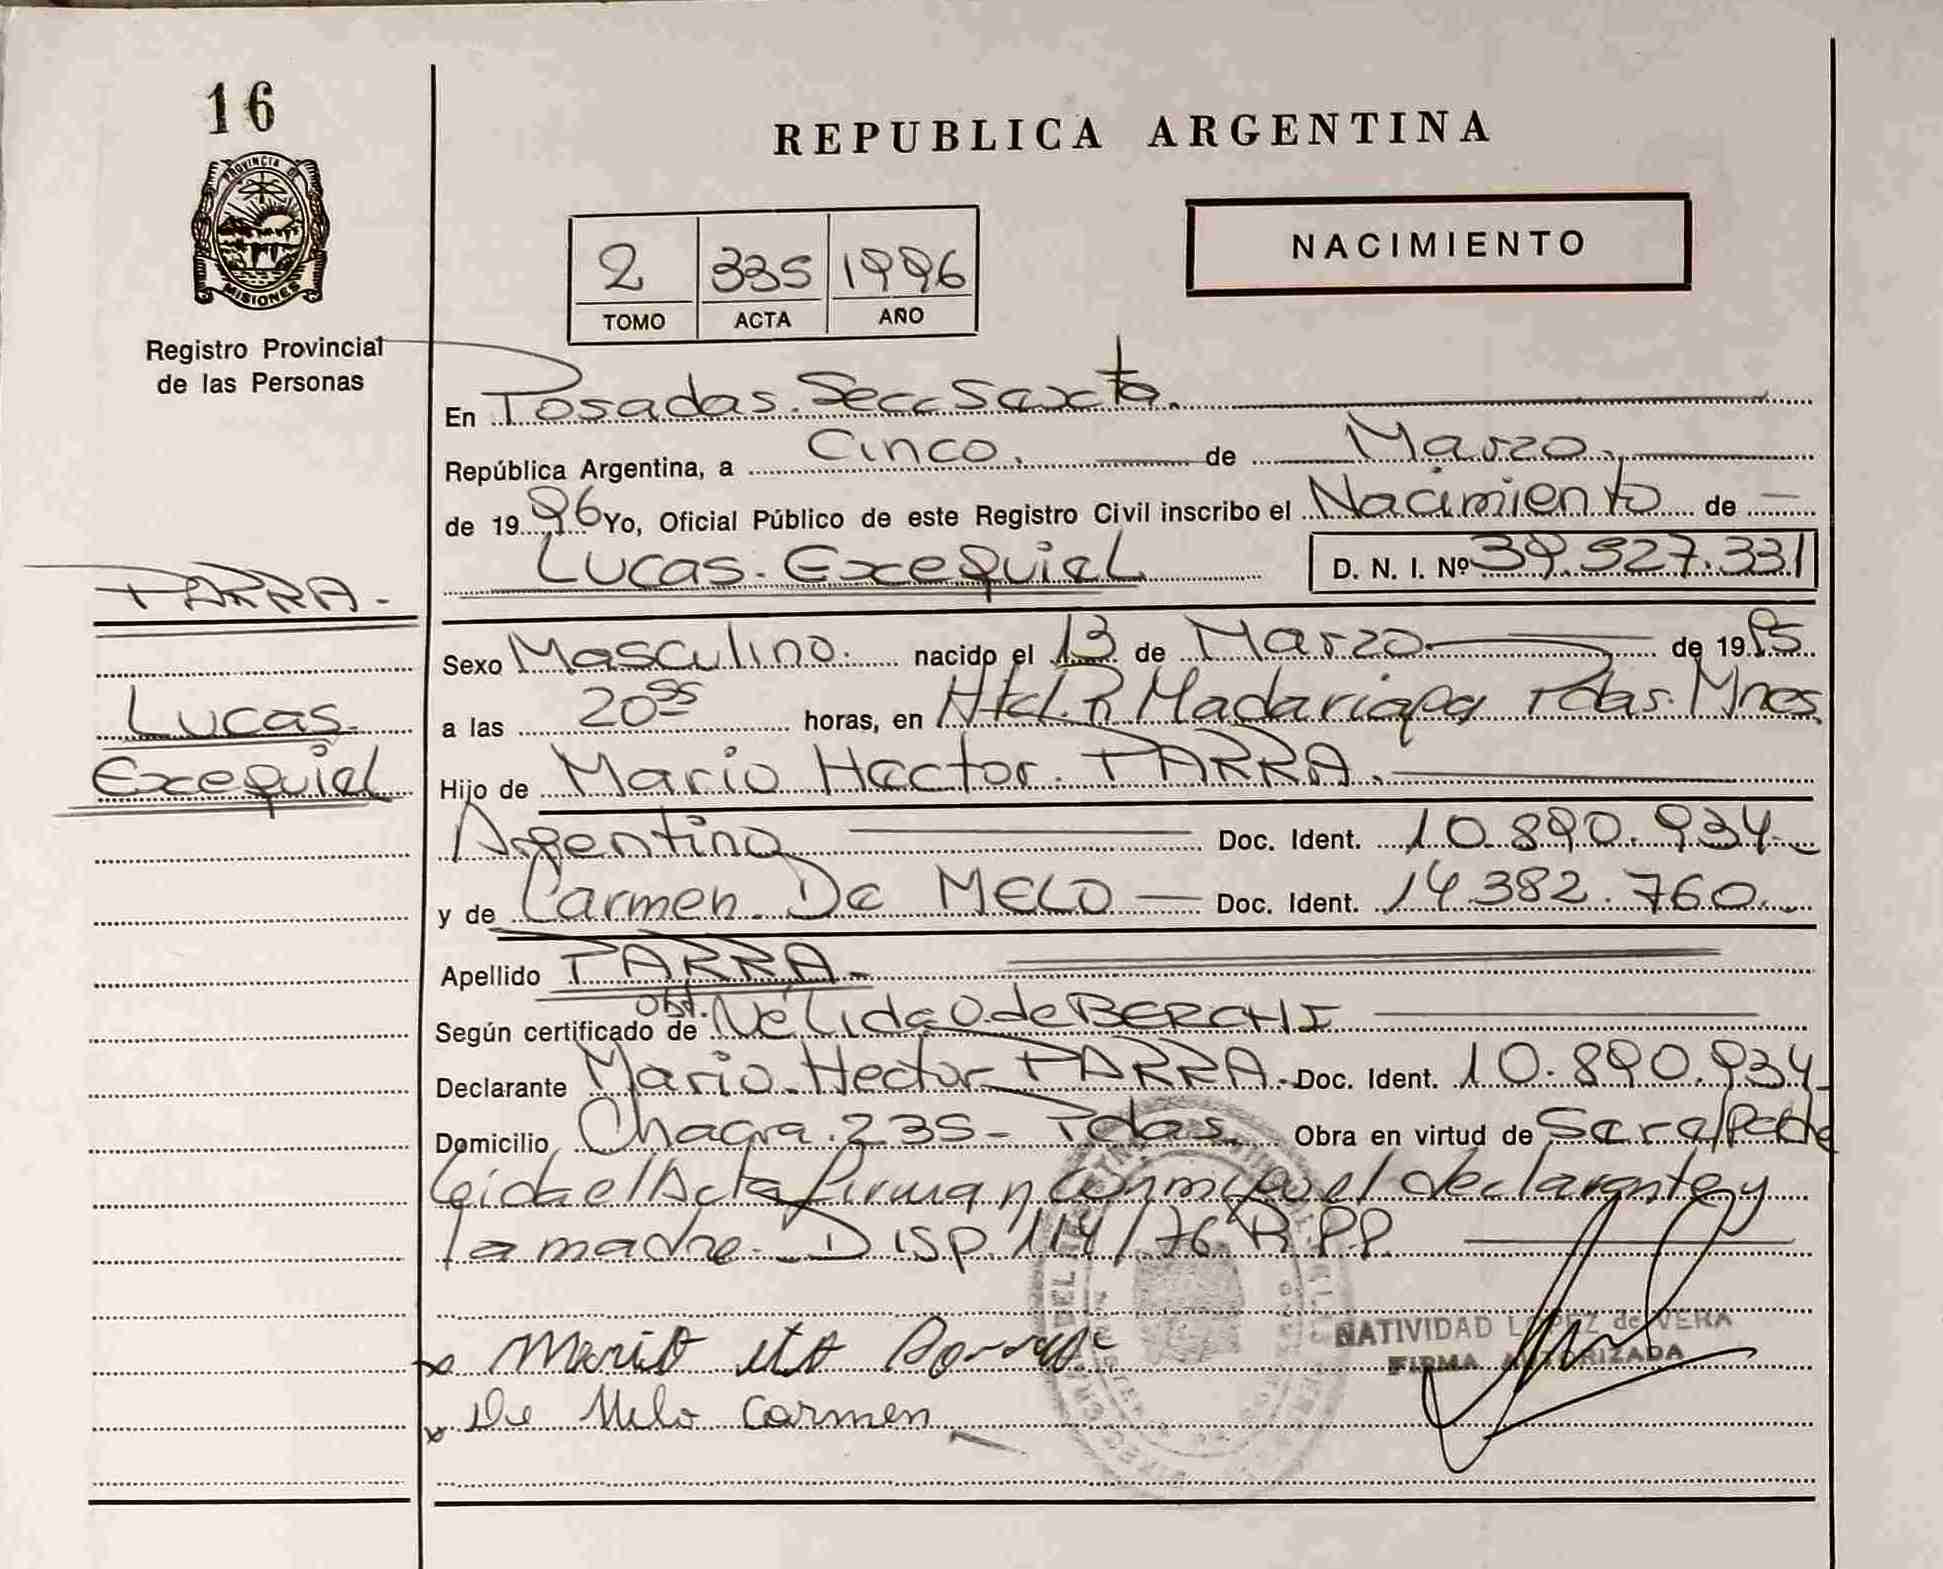 16
PROVINCIA DE
MISIONES
Registro Provincial
de las Personas
REPUBLICA ARGENTINA
NACIMIENTO
2 335 1996
TOMO ACTA AÑO
En Posadas. Secc Sexta.
República Argentina, a Cinco. de Marzo.
de 1996 Yo, Oficial Público de este Registro Civil inscribo el Nacimiento de
Lucas. Exequiel D. N. I. Nº 39.527.331
PARRA.
Lucas.
Exequiel
Sexo Masculino. nacido el 13 de Marzo de 1995
a las 20 55 horas, en Htal. R Madariaga Pdas. Mnes.
Hijo de Mario Hector. PARRA.
Argentino Doc. Ident. 10.890.934
y de Carmen. De MELO Doc. Ident. 14.382.760.
Apellido PARRA.
Según certificado de Obst. Nélida O. de BERCHI
Declarante Mario Hector PARRA. Doc. Ident. 10.890.934
Domicilio Chacra. 235 - Pdas. Obra en virtud de Ser el Padre
Leida el Acta firman conmigo el declarante y
la madre. Disp. 114/76 R.P.P.
NATIVIDAD LOPEZ de VERA
FIRMA AUTORIZADA
x De Melo Carmen